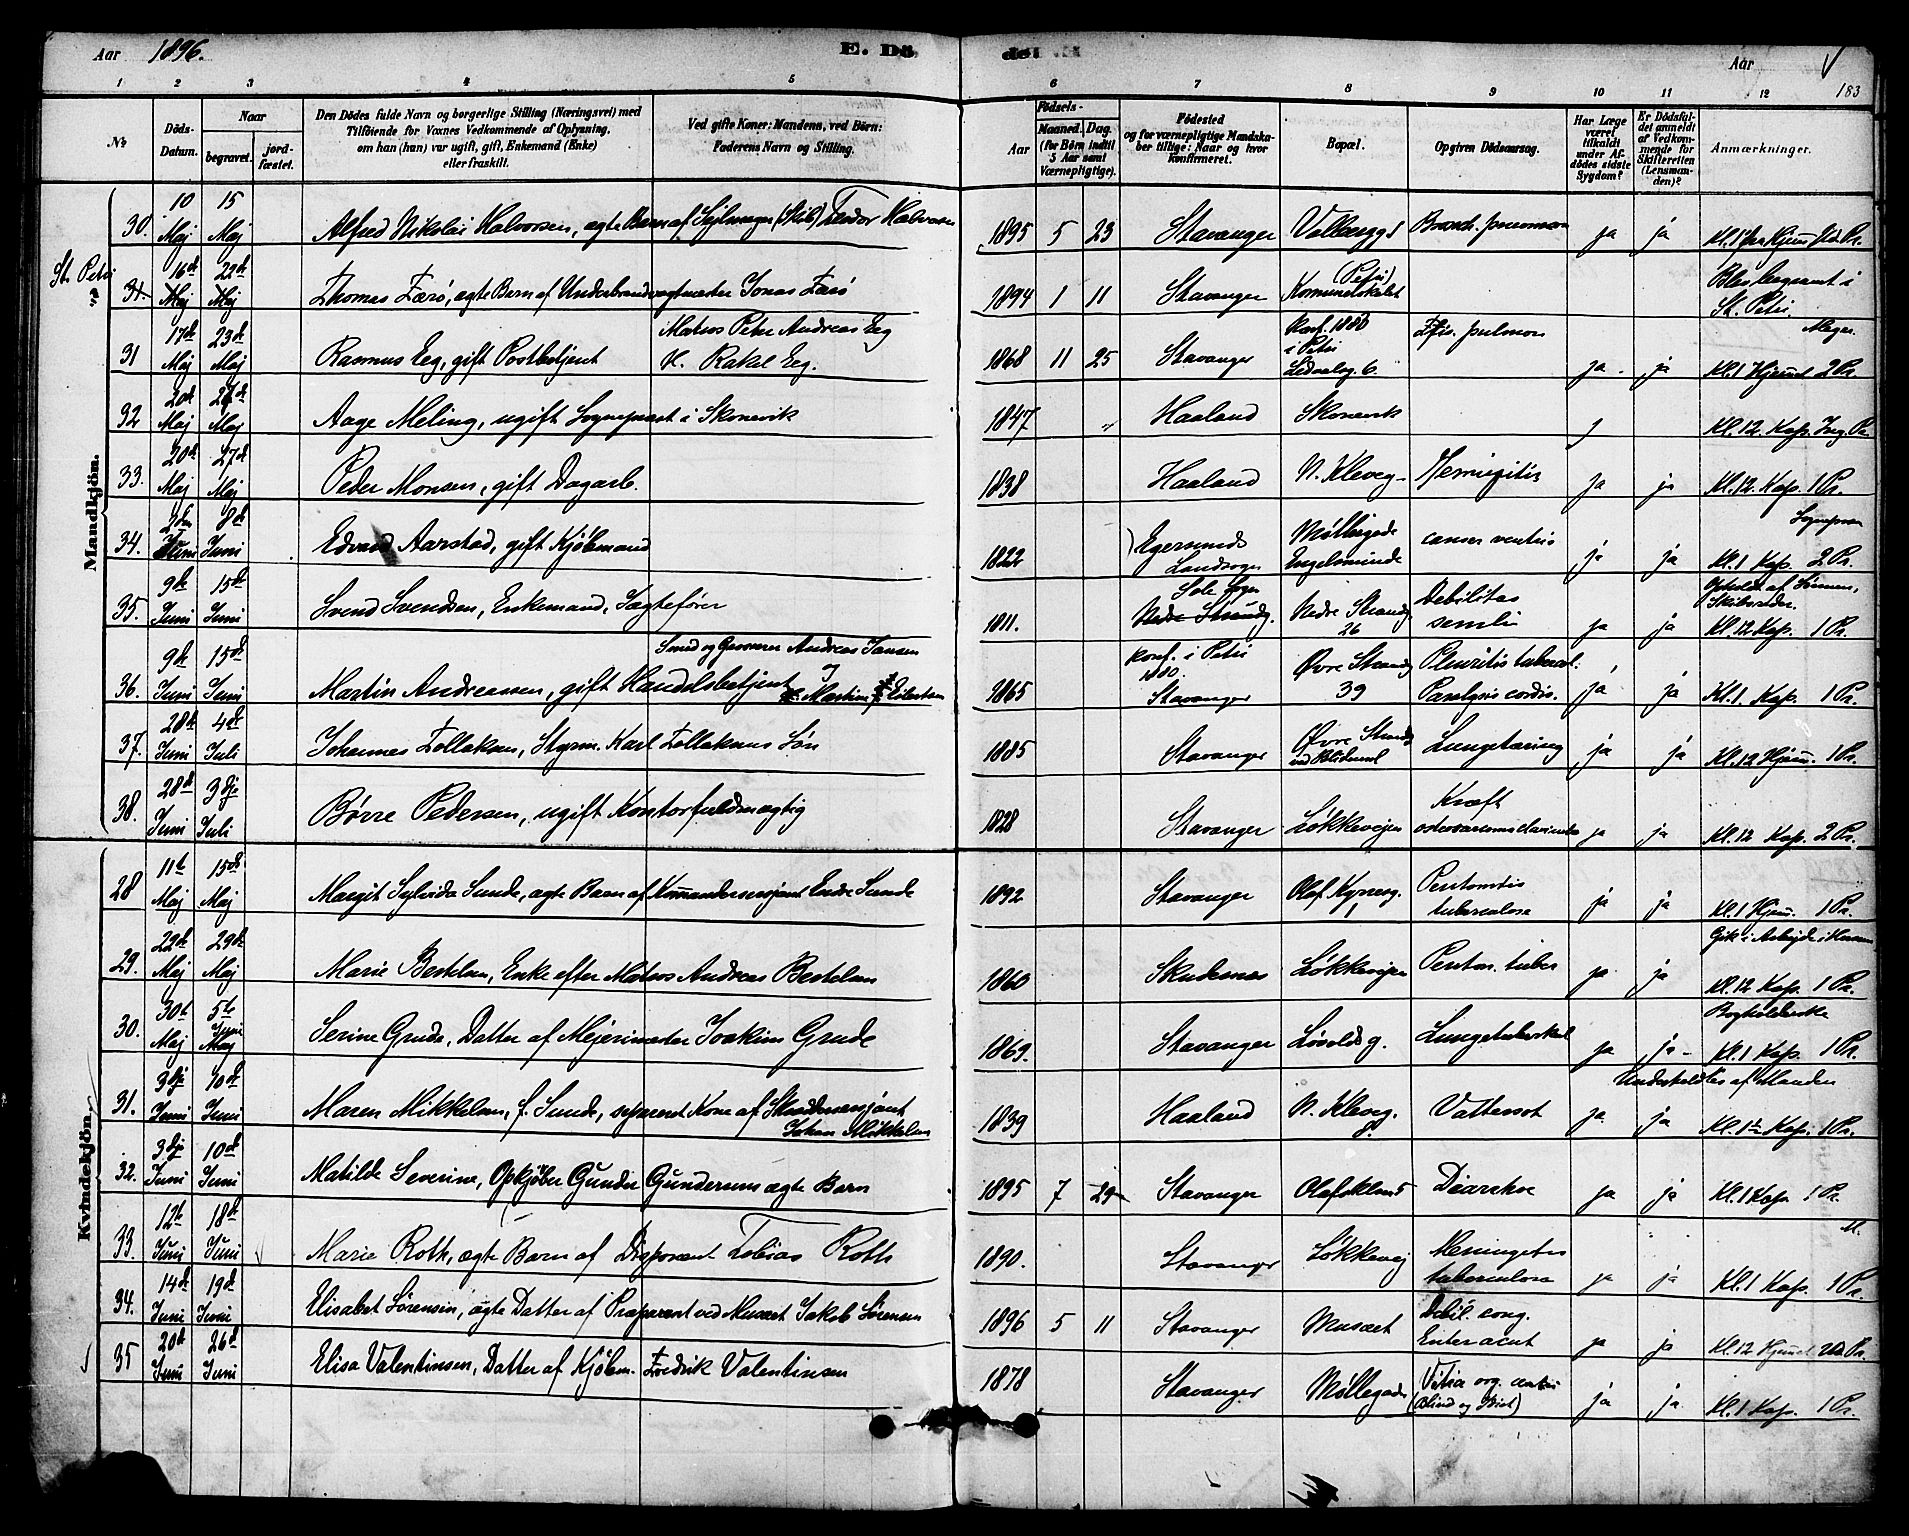 Aar 1896.
E. Dö
de
Aar
183
1 2 3 4 5 6 7 8 9 10 11 12
No
Döds-Datum.
Naar
begravet.
jord-fæstet.
Den Dödes fulde Navn og borgerlige Stilling (Næringsvei) med
Tilföiende for Voxnes Vedkommende af Oplysning,
om han (hun) var ugift, gift, Enkemand (Enke)
eller fraskilt.
Ved gifte Koner: Mandens, ved Börn:
Faderens Navn og Stilling.
Födsels-
Aar
Maaned. Dag.
(for Börn indtil
5 Aar samt
Værnepligtige).
Födested
og for værnepligtige Mandska-
ber tillige: Naar og hvor
konfirmeret.
Bopæl.
Opgiven Dödsaarsag.
Har Læge
været
tilkaldt
under Af-
dödes sidste
Sygdom?
Er Dödsfal-
det anmeldt
af Vedkom-
mende for
Skifteretten
(Lensman-
den)?
Anmærkninger.
Mandkjön.
30. 10 Maj 15 Maj Alfred Nikolai Halvorsen, ægte Barn af Sejlmager (Skib) Teodor Halvorsen 1895 5 23 Stavanger ja ja
St. Petri 31. 16de Maj 22de Maj Thomas Færø, ægte Barn af Underbrandvagtmester Jonas Færø 1894 1 11 Stavanger (Petri) Komunelokalet Blev begravet i St. Petri.
31 17de Maj 23de Maj Rasmus Eeg, gift Postbetjent Matros Peter Andreas Eeg H. Rakel Eeg. 1868 11 25 Stavanger konf. i Petri Ledaalsg. 6. pulmon ja ja Kl. 1 Hjemmet 2 Pr.
32 20de Maj 27de Maj Aage Meling, ugift Sogneprest i Skonevik 1847 Haaland Skonevik j Kl. 12. Kap.
33. 20de Maj 27de Maj Peder Monsen, gift Dagarb. 1838 Haaland N. Kleveg. ja ja Kl. 12. Kap. 1 Pr.
34. 2den Juni 8de Juni Edvard Aarstad, gift Kjøbmand 1822 Egersunds Landsogn Møllegade cancer ventris ja ja Kl. 1 Kap. 2 Pr.
35. 9de Juni 15de Juni Svend Svendsen, Enkemand, Jagtefører 1811. Sole Sogn Nedre Strandg. Nedre Strandg. 26 Debilitas senilis ja ja Kl. 12 Kap. 1 Pr.
36. 9de Juni 15de Juni Martin Andreassen, gift Handelsbetjent Smed og Gasværer Andreas Jansen 1865 konf. i Petri 1880. Stavanger Øvre Strandg. 39 Pleuritis tubercul. Paralysis cordis. ja ja Kl. 1 Kap. 1 Pr.
37. 28de Juni 4de Juli Johannes Tollaksen, Styrm. Karl Tollaksens Søn 1885 Stavanger Øvre Strandg. Lungetæring ja ja Kl. 12 Hjem. 1 Pr.
38. 28de Juni 3dje Juli Børre Pedersen, ugift Kontorfuldmægtig 1828 Stavanger Løkkevejen Kræft ja ja Kl. 12 Kap. 2 Pr.
Kvindekjön.
28 11te Maj 15de Maj Margit Sylvida Sunde, ægte Barn af Kommandersergant Endre Sunde 1892 Stavanger Olaf Kyrresg. 1 tuberculose ja ja Kl. 1 Hjem. 1 Pr.
29. 22de Maj 29de Maj Marie Bertelsen, Enke efter Matros Andreas Bertelsen 1860 Skudesnes Løkkevejen Periton. tuber ja ja Gik i Arbejde i Husene Kl. 12 Kap. 1 Pr.
30. 30te Maj 5te Juni Serine Grude, Datter af Mejerimester Joakim Grude 1869. Stavanger Løvoldsg. Lungetuberkel ja ja Bogholderske Kl. 1 Kap. 1 Pr.
31. 3dje Juni 10de Juni Maren Mikkelsen, f. Sunde, separeret Kone af Johan Mikkelsen 1839 Haaland N. Kleveg. 8. Vattersot ja ja Underholdtes af Manden Kl. 12 Kap. 1 Pr.
32. 3dje Juni 10de Juni Matilde Severine, Opkjøber Gunder Gundersens ægte Barn 1895 7 29 Stavanger Olafsklev 5 Diarrhoe ja ja Kl. 1 Kap. 1 Pr.
33. 12te Juni 18de Juni Marie Roth, ægte Barn af Disponent Tobias Roth 1890. Stavanger Løkkevej Meningitis tuberculosa ja ja Kl. 1 Kap. 1 Pr.
34. 14de Juni 19de Juni Elisabet Sørensen, ægte Datter af Præparant ved Museet Jakob Sørensen 1896 5 11 Stavanger Museet Debil. cong. Enter acut ja ja Kl. 12 Hjemmet
35 20de Juni 26de Juni Elisa Valentinsen, Datter af Kjøbm. Fredrik Valentinsen 1878 Stavanger Møllegade Vitia org. cordis (Blind og) ja ja Kl. 1 Kap. 1 Pr.